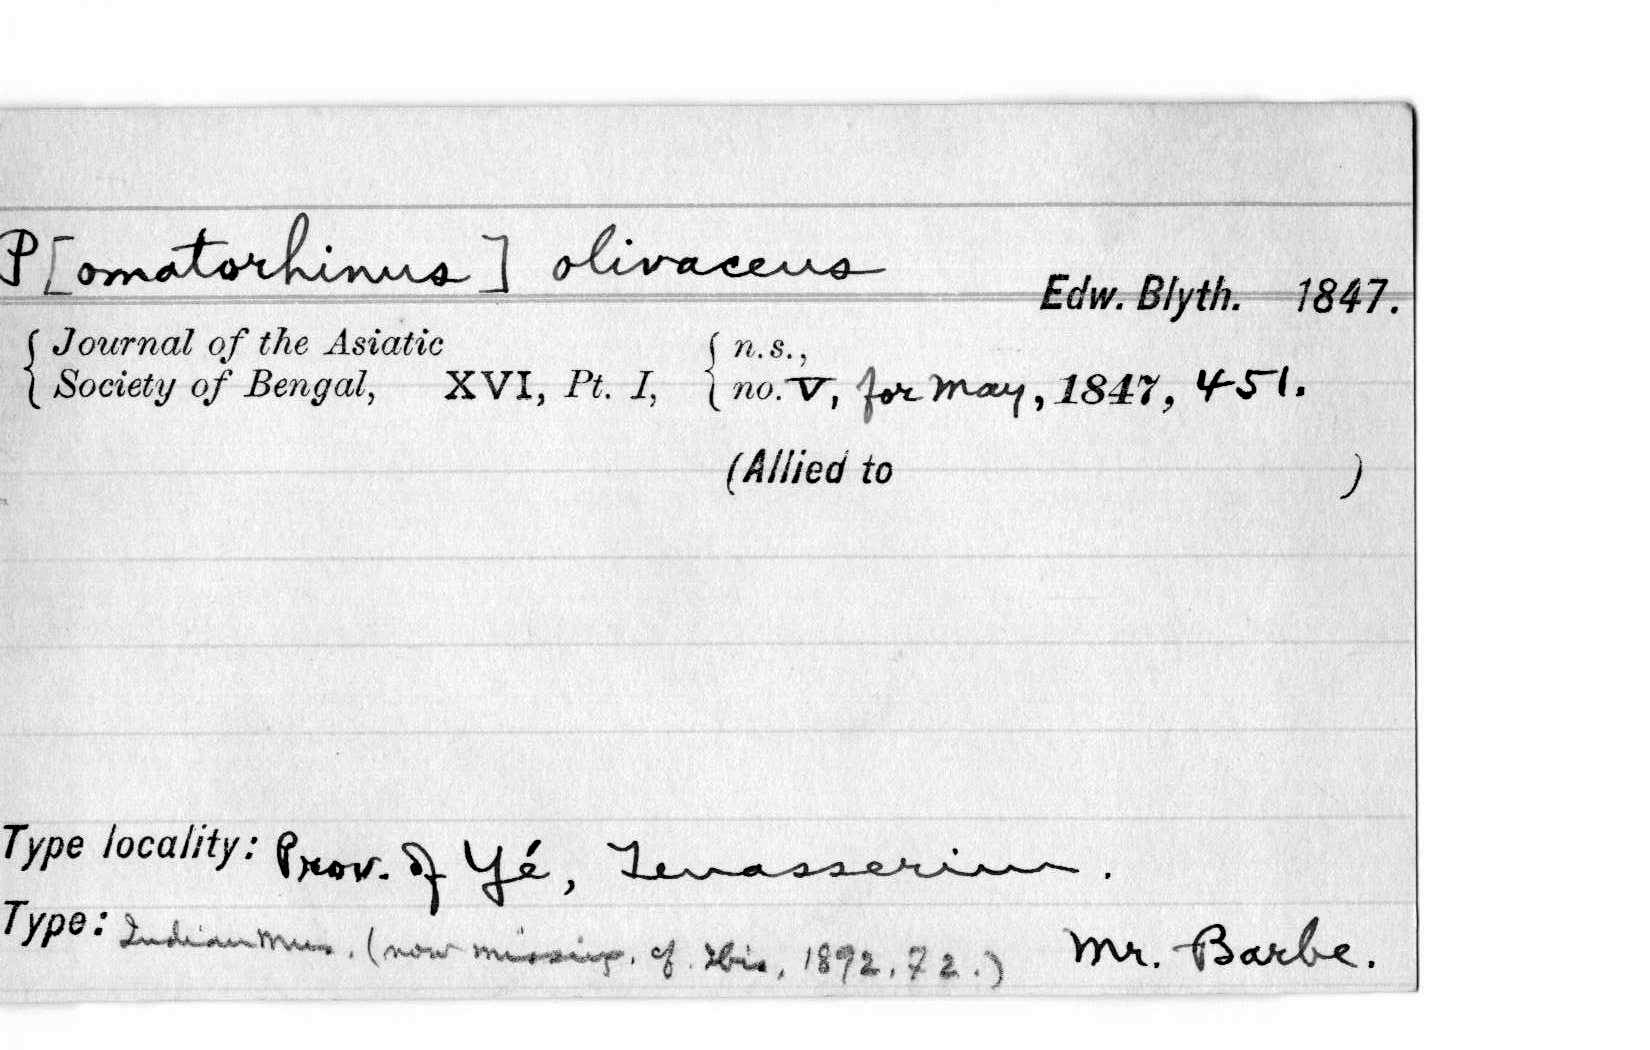 P[omatorhinus] olivaceus
Edw. Blyth. 1847.
Journal of the Asiatic
Society of Bengal, XVI, Pt. I, n.s.,
no. V, for May, 1847, 451.
(Allied to )
Type locality: Prov. of Yé, Tenasserim.
Type: Indian Mus. (now missing. cf. Ibis, 1892, 72.) Mr. Barbe.